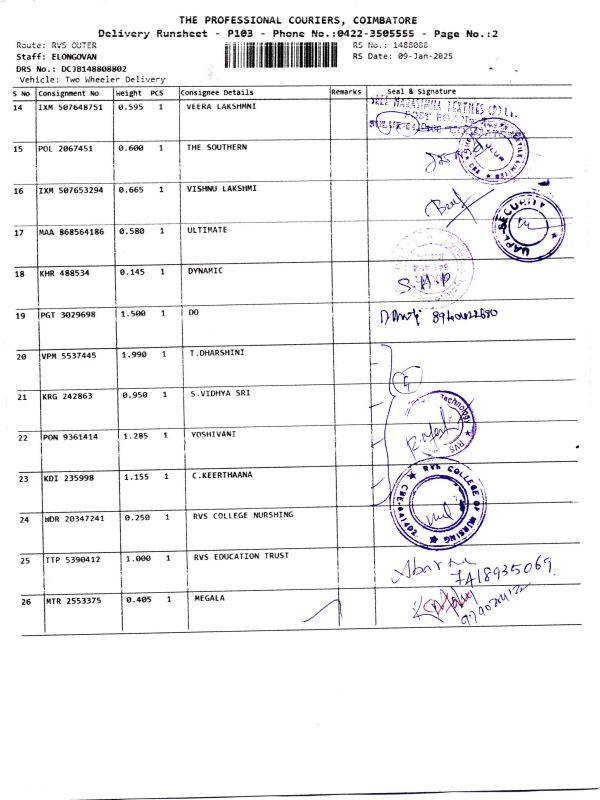 THE PROFESSIONAL COURIERS, COIMBATORE
Delivery Runsheet - P103 - Phone No.:0422-3505555 - Page No.:2
Route: RVS OUTER RS No.: 1488088
Staff: ELONGOVAN RS Date: 09-Jan-2025
DRS No.: DCJB148808802
Vehicle: Two Wheeler Delivery
S No Consignment No Weight PCS Consignee Details Remarks Seal & Signature
14 IXM 507648751 0.595 1 VEERA LAKSHMNI
15 POL 2067451 0.600 1 THE SOUTHERN
16 IXM 507653294 0.665 1 VISHNU LAKSHMI
UAPL-SECURITY
17 MAA 868564186 0.580 1 ULTIMATE
18 KHR 488534 0.145 1 DYNAMIC
19 PGT 3029698 1.500 1 DO
20 VPM 5537445 1.990 1 T.DHARSHINI
21 KRG 242863 0.950 1 S.VIDHYA SRI
22 PON 9361414 1.285 1 YOSHIVANI
23 KDI 235998 1.155 1 C.KEERTHAANA
RVS COLLEGE OF NURSING
24 WDR 20347241 0.250 1 RVS COLLEGE NURSHING
25 TTP 5390412 1.000 1 RVS EDUCATION TRUST
7418935069
26 MTR 2553375 0.405 1 MEGALA